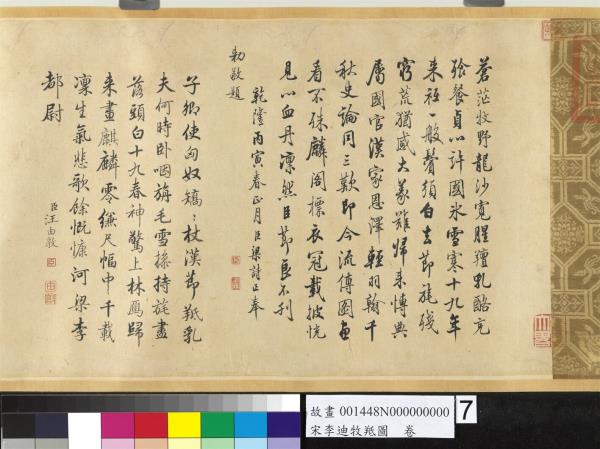 蒼茫牧野龍沙寬腥羶乳酪充
強餐貞心許國氷雪寒十九年
来秪一般鬢須白去節旄殘
窮荒猶感大義難歸来博典
屬國官漢家恩澤輕羽翰千
秋史論同三歎即今流傳圖畫
看不殊麟閣標衣冠載披恍
見心血丹凜然臣節良不刋
乾隆丙寅春正月臣梁詩正奉
勅敬題
子卿使匈奴矯〻杖漢節羝乳
夫何時卧囓旃毛雪操持旄盡
落頭白十九春神驚上林鴈歸
来畫麒麟零縑尺幅中千載
凜生氣悲歌餘慨慷河梁李
都尉
臣汪由敦
故畫 001448N000000000
宋李迪牧羝圖 卷
7